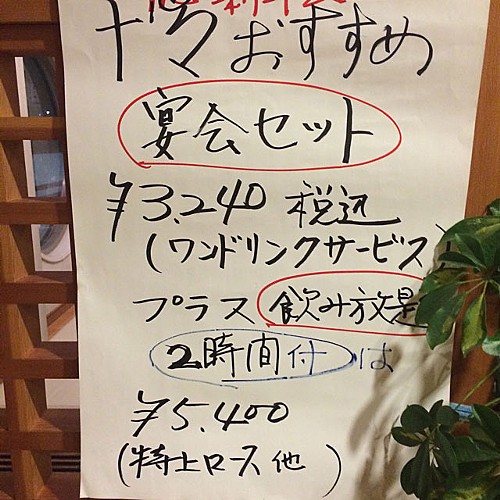 ドマおすすめ
宴会セット
¥3.240 税込
(ワンドリンクサービス)
プラス 飲み放題
2時間付は
¥5.400
(特上ロース他)